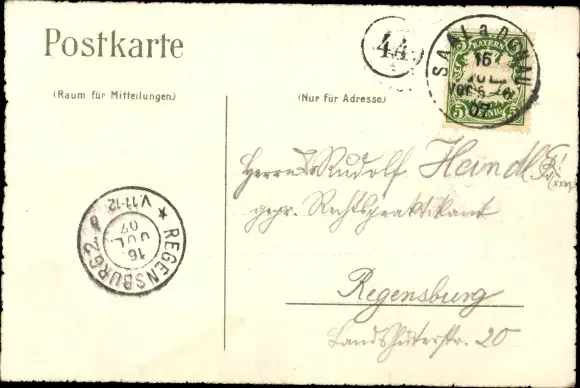 Postkarte
(Raum für Mitteilungen.)
(Nur für Adresse.)
44
SAAL a. DONAU
16
JUL.
VOR. 5-6
07
BAYERN
5 PFENNIG 5
Herrn Rudolf Heindl
gepr. Rechtspraktikant
Regensburg
Landshuterstr. 20
REGENSBURG 2
16.
JUL.
07
V. 11-12